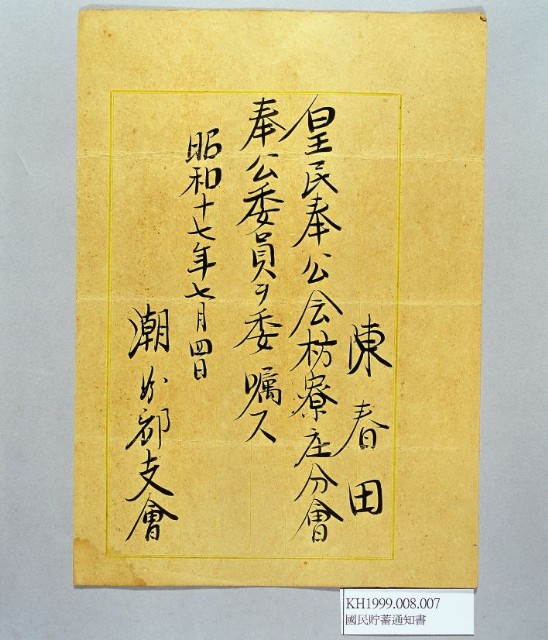 陳春田
皇民奉公会枋寮庄分會
奉公委員ヲ委嘱ス
昭和十七年七月四日
潮州郡支會
KH1999.008.007
國民貯蓄通知書